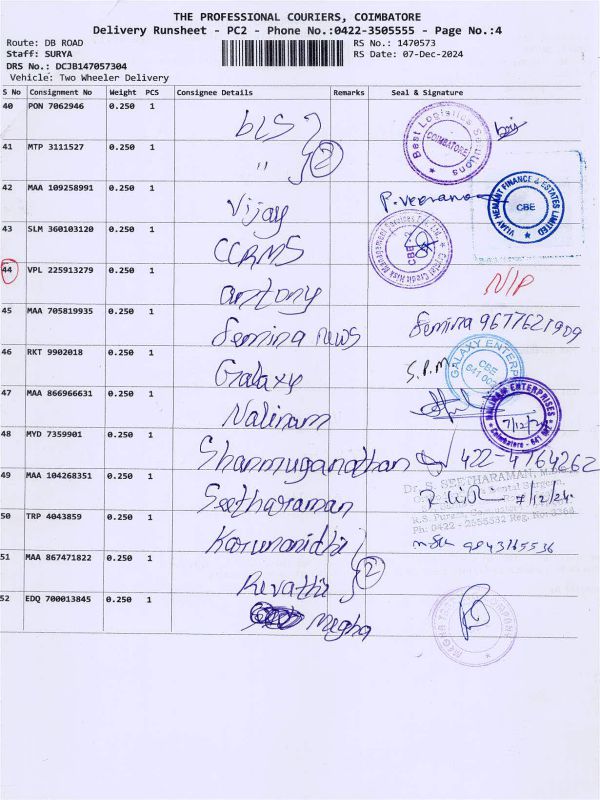 THE PROFESSIONAL COURIERS, COIMBATORE
Delivery Runsheet - PC2 - Phone No.:0422-3505555 - Page No.:4
Route: DB ROAD RS No.: 1470573
Staff: SURYA RS Date: 07-Dec-2024
DRS No.: DCJB147057304
Vehicle: Two Wheeler Delivery
S No Consignment No Weight PCS Consignee Details Remarks Seal & Signature
40 PON 7062946 0.250 1 BLS Best Logistics Solutions COIMBATORE
41 MTP 3111527 0.250 1 " 2
42 MAA 109258991 0.250 1 Vijay P.Veerana VIJAY HEMANT FINANCE & ESTATES LIMITED CBE
43 SLM 360103120 0.250 1 CCRMS CBE
44 VPL 225913279 0.250 1 Antony N/P
45 MAA 705819935 0.250 1 Semina news Semina 9677621909
46 RKT 9902018 0.250 1 Galaxy S.P.M GALAXY ENTERP CBE 641 002
47 MAA 866966631 0.250 1 Nalinam NALINAM ENTERPRISES 7/12/24 Coimbatore - 641 002
48 MYD 7359901 0.250 1 Shanmuganathan 422-4764262
49 MAA 104268351 0.250 1 Seetharaman Dr. S. SEETHARAMAN, 7/12/24
R.S. Puram,
Ph: 0422 - 2555532 Reg. No: 3368
50 TRP 4043859 0.250 1 Karunanidhi 9843765536
51 MAA 867471822 0.250 1 Revathi 2
52 EDQ 700013845 0.250 1 Megha